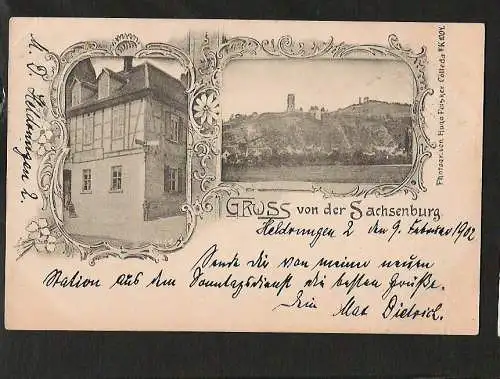 GRUSS von der Sachsenburg.
Photogr. von Hugo Pösker Cölleda
Heldrungen 2 den 9. Februar 1902
Sende Dir von meiner neuen
Station aus dem Sonntagsdienst die besten Grüße.
Dein Max Dietrich.
Heldrungen 2.